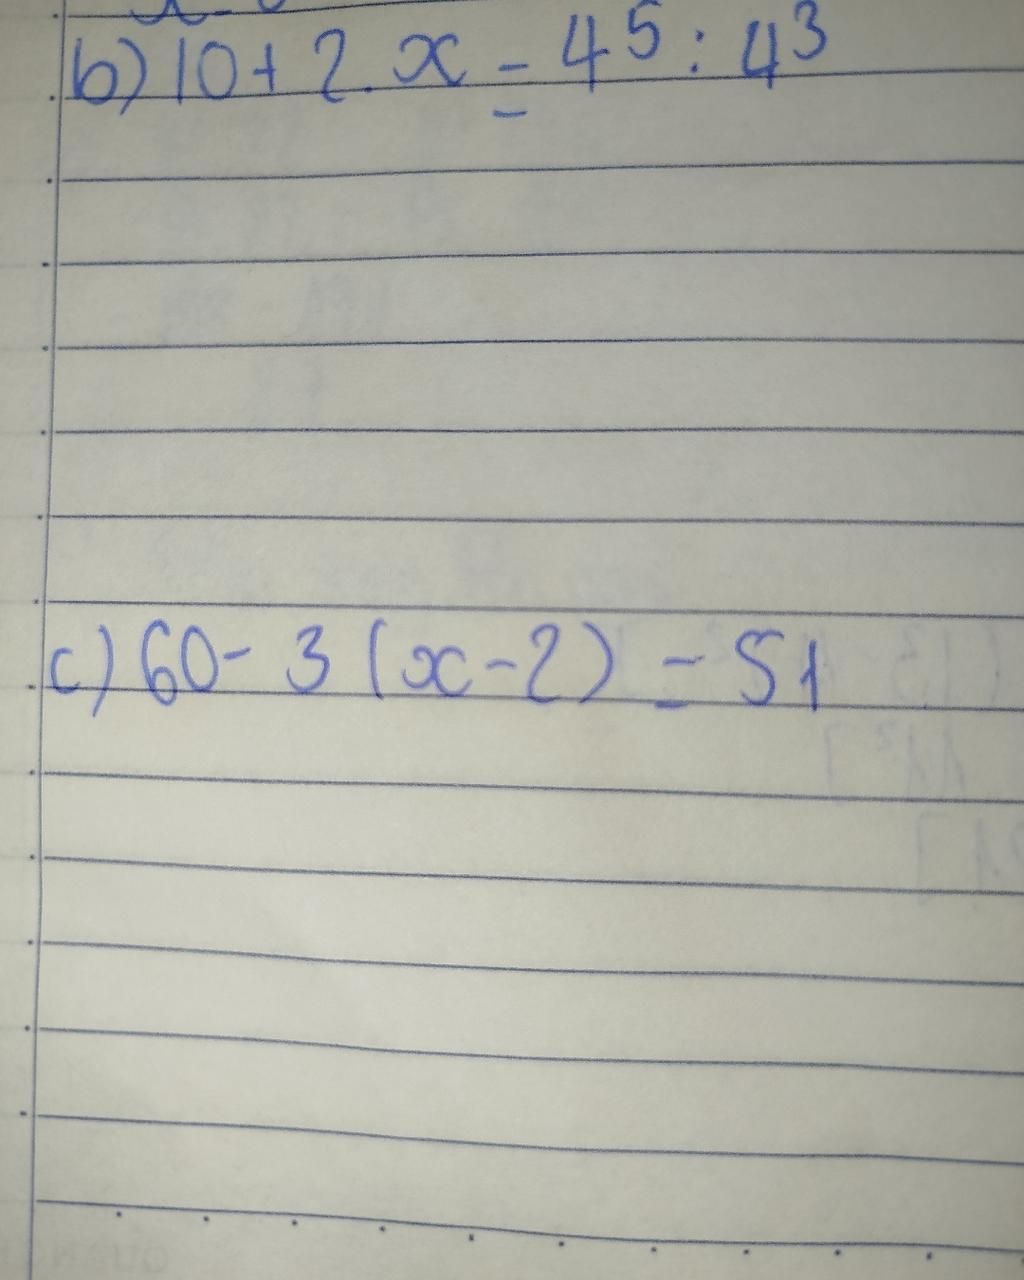 b) 10 + 2 . x = 4⁵ : 4³
c) 60 - 3 (x - 2) = 51